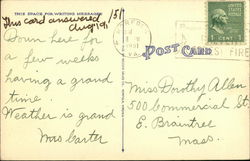 THIS SPACE FOR WRITING MESSAGES
This card answered
Aug 1951
Down here for
a few weeks
having a grand
time.
Weather is grand
Mrs Carter
1951
VA.
POST CARD
1 CENT 1
FIRE
Miss Dorothy Allen
500 Commercial St
E. Braintree
Mass.